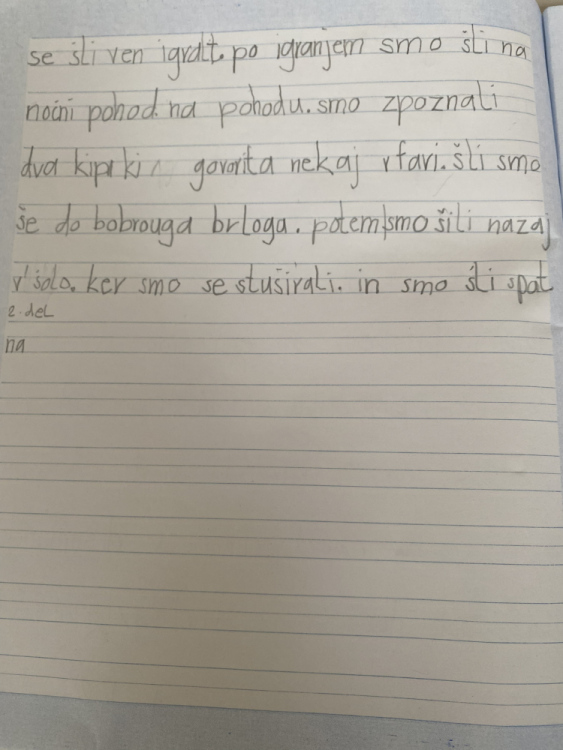 se šli ven igralt. po igranjem smo šli na
nočni pohod. na pohodu. smo zpoznali
dva kipa ki govorita nekaj v fari. šli smo
še do bobrouga brloga. potem smo šili nazaj
v šolo. ker smo se stuširali. in smo šli spat
2. del
na